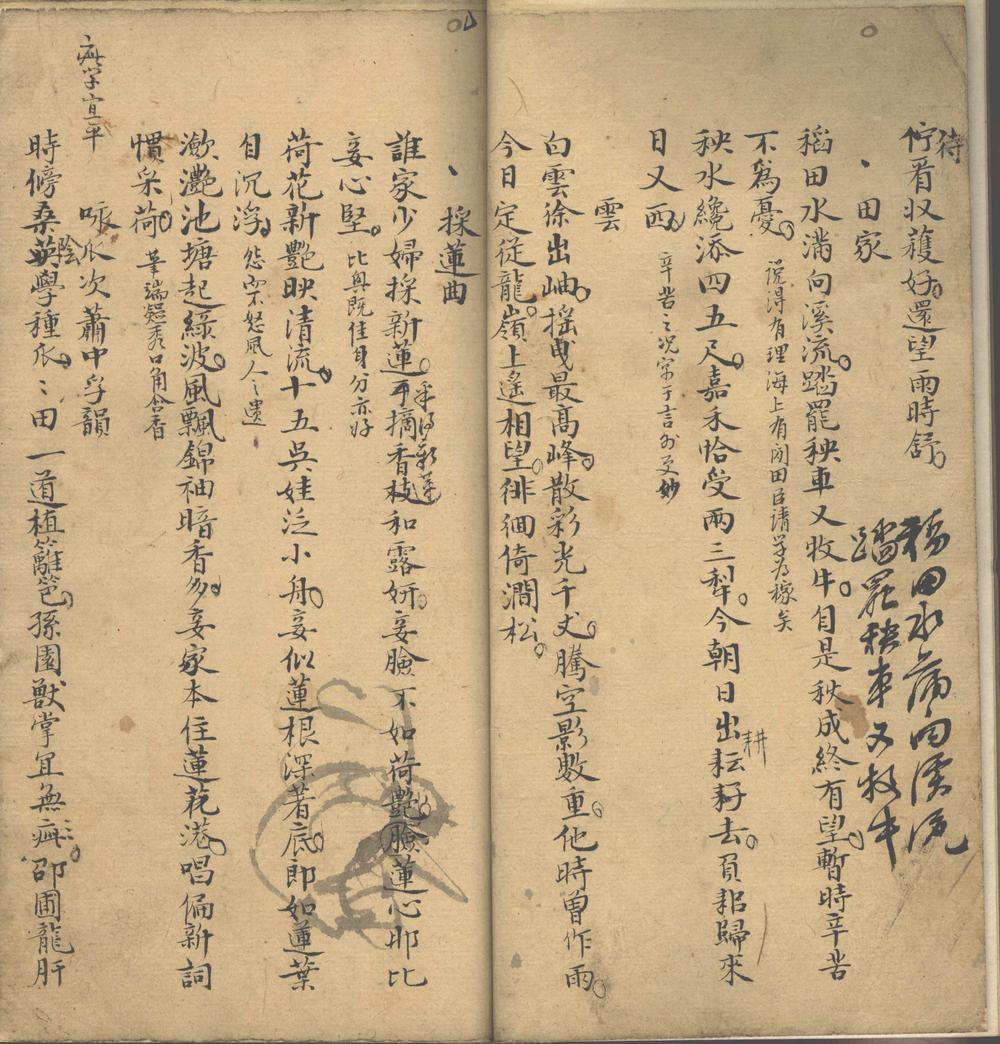 待
佇看収穫好還望雨時舒
稻田水滿向溪流
踏罷秧車又牧牛
田家
稻田水滿向溪流踏罷秧車又牧牛自是秋成終有望暫時辛苦
不為憂 説得有理海上有閑田臣請学為稼矣
秧水纔添四五尺嘉禾恰受兩三犁今朝日出耘耔去負耜歸來
耕
日又西 辛苦之况寓于言外更妙
雲
白雲徐出岫摇曳最髙峰散彩光千丈騰空影數重他時曽作雨
今日定従龍嶺上遙相望徘徊倚澗松
採蓮曲
誰家少婦採新蓮手摘香枝和露妍妾臉不如荷艷臉蓮心郎比
妾心堅 比與既佳身分亦好
荷花新艷映清流十五吳娃泛小舟妾似蓮根深著底郎如蓮葉
自沉浮 怨而不怒風人之遗
瀲灧池塘起綠波風飄錦袖暗香多妾家本住蓮花港唱徧新詞
慣采荷 筆端凝秀口角含香
咏瓜次蕭中孚韻
時傍桑陰學種瓜〻田一道植籬笆孫園獸掌宜無疵邵圃龍肝
疵字宜平